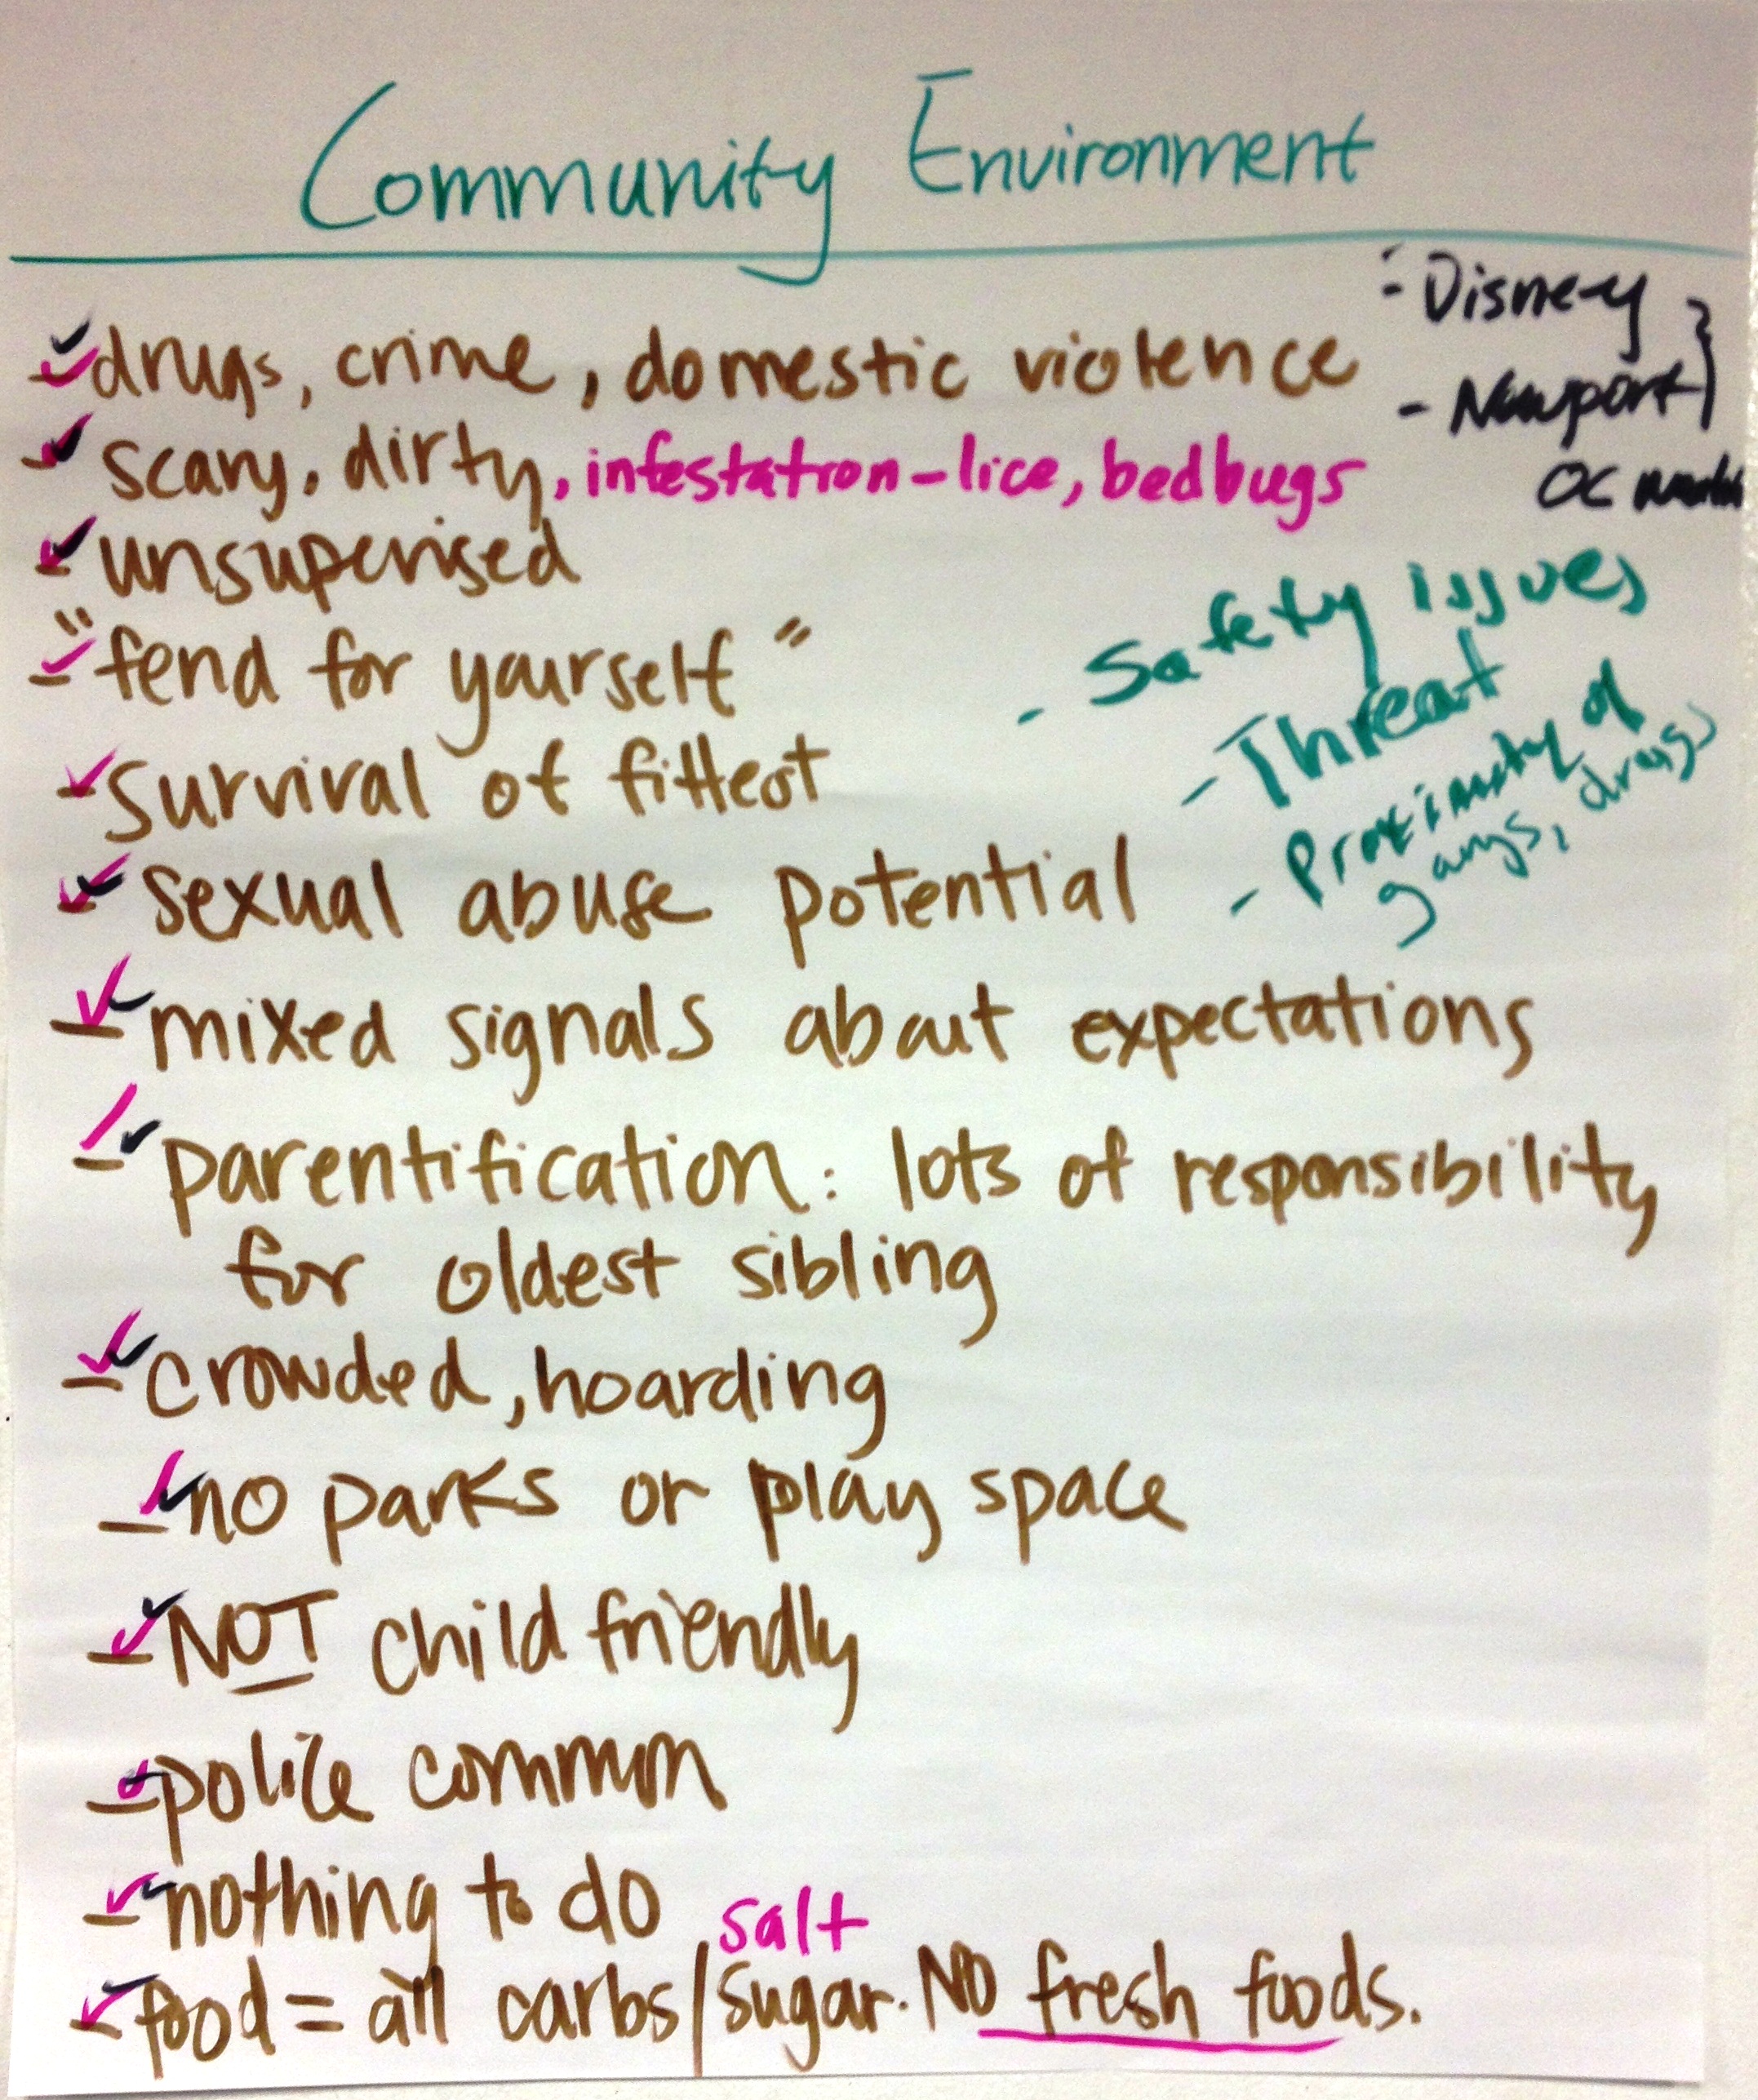 Community Environment
- Disney
- drugs, crime, domestic violence
- Newport
- scary, dirty, infestation - lice, bedbugs
OC
- unsupervised
- Safety issues
- "fend for yourself"
- Threat
- Survival of fittest
- Proximity of
gangs, drugs
- sexual abuse potential
- mixed signals about expectations
- parentification: lots of responsibility
for oldest sibling
- crowded, hoarding
- no parks or play space
- NOT child friendly
- police common
- nothing to do
salt
- food = all carbs/sugar. NO fresh foods.